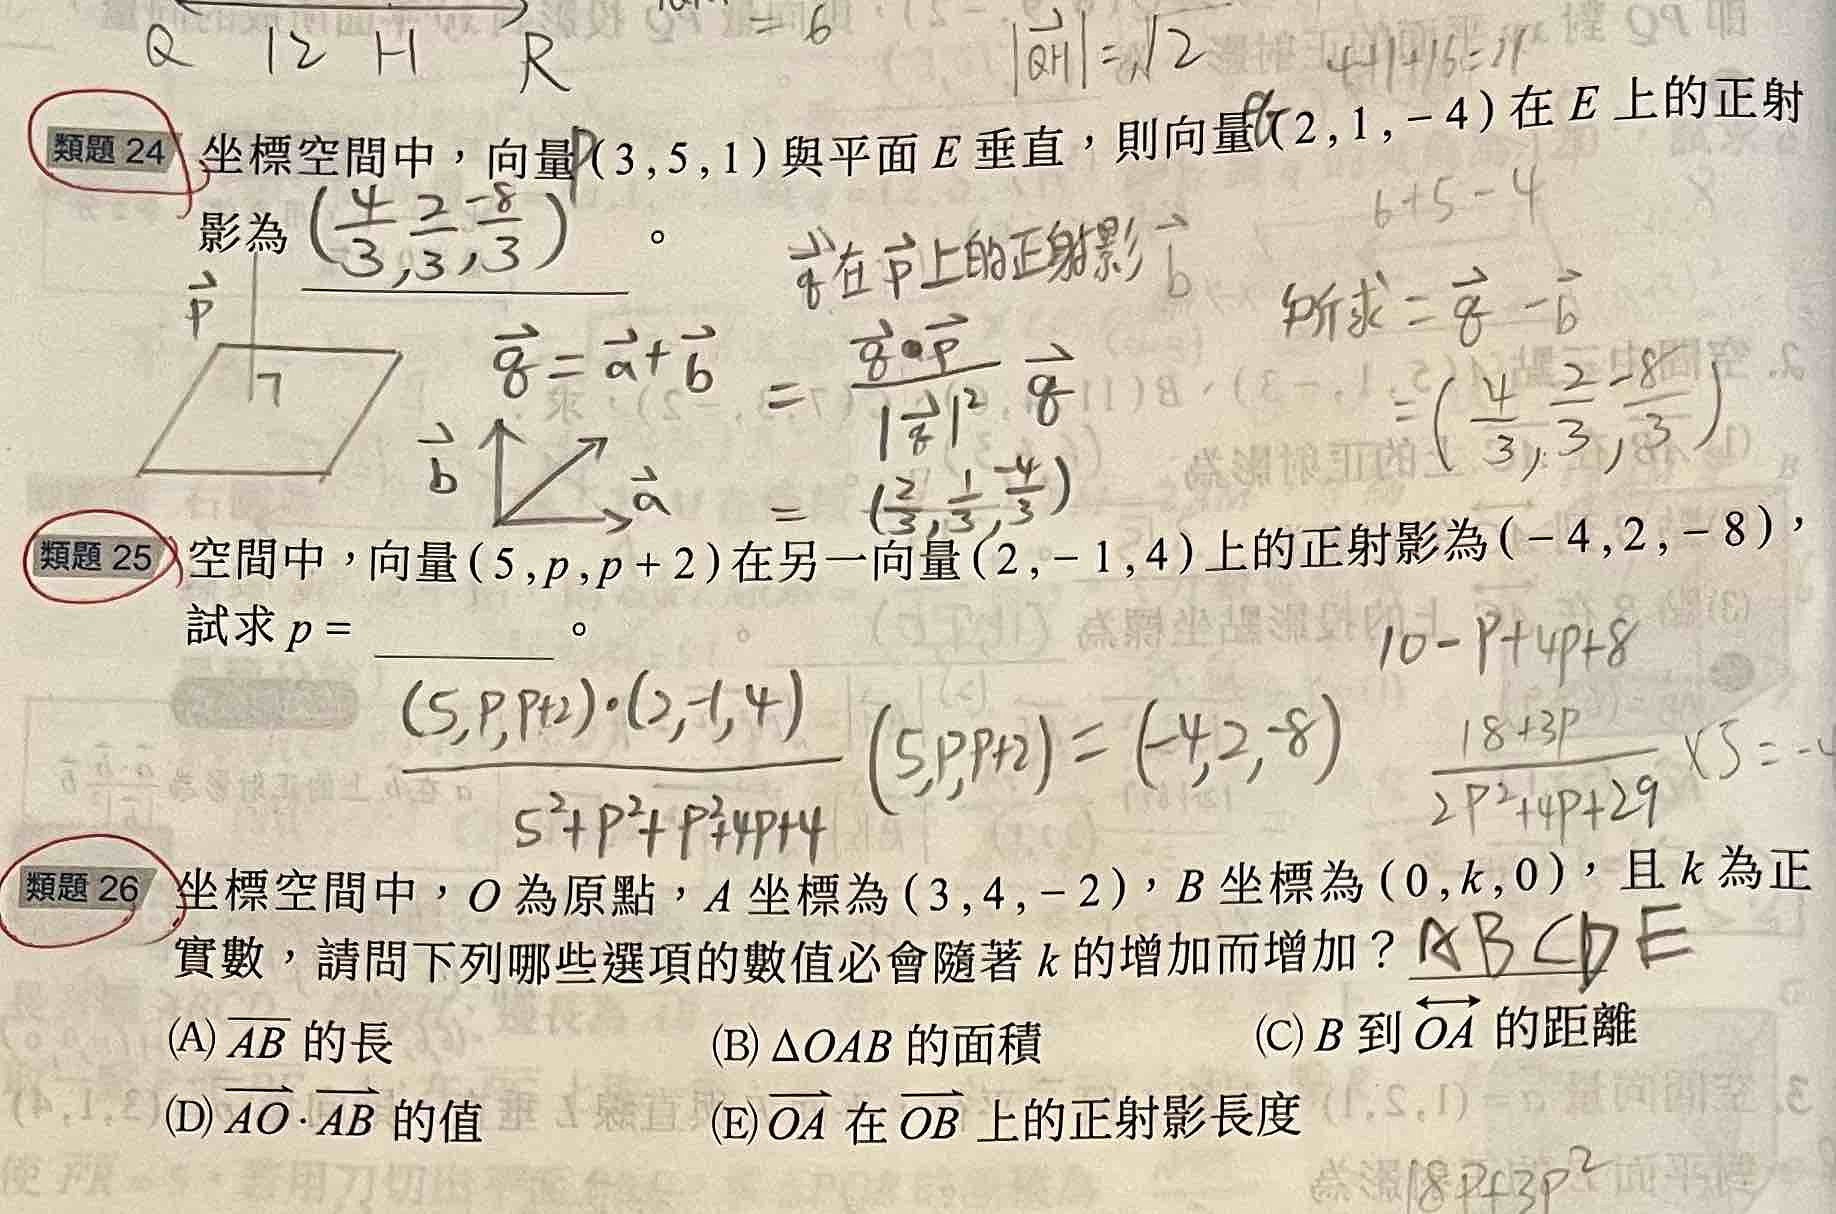 Q 12 H R
= 6
|QH| = √2
4+1+16=21
類題 24 坐標空間中，向量P(3,5,1)與平面 E 垂直，則向量q(2,1,-4)在 E 上的正射
影為 (4/3, 2/3, -8/3) 。
6+5-4
q在p上的正射影b
所求 = q - b
p
q = a + b
= q•p / |q|² q
= (4/3, 2/3, -8/3)
b a
= (2/3, 1/3, -4/3)
類題 25 空間中，向量(5,p,p+2)在另一向量(2,-1,4)上的正射影為(-4,2,-8)，
試求 p = 。
10-P+4P+8
(5,P,P+2)•(2,-1,4) / 5²+P²+P²+4P+4 (5,P,P+2) = (-4,2,-8)
18+3P / 2P²+4P+29 ×5 = -4
類題 26 坐標空間中，O 為原點，A 坐標為(3,4,-2)，B 坐標為(0,k,0)，且 k 為正
實數，請問下列哪些選項的數值必會隨著 k 的增加而增加？ABCDE
(A) AB 的長 (B) ΔOAB 的面積 (C) B 到 OA 的距離
(D) AO · AB 的值 (E) OA 在 OB 上的正射影長度
18P+3P²